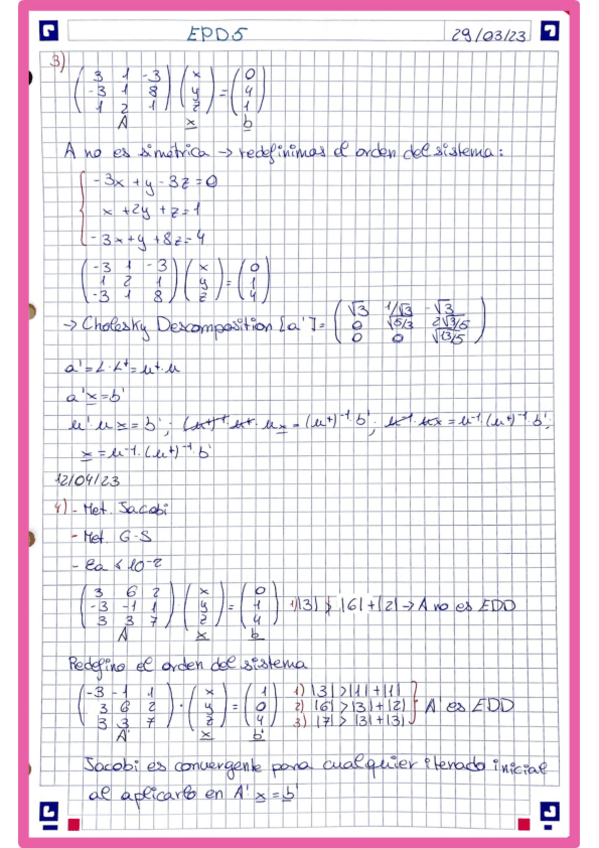 EPD5 29/03/23
3)
( 3 1 -3 ) ( x ) ( 0 )
( -3 1 8 ) ( y ) = ( 4 )
( 1 2 1 ) ( z ) ( 1 )
A x b
A no es simétrica → redefinimos el orden del sistema:
-3x + y - 3z = 0
x + 2y + z = 1
-3x + y + 8z = 4
( -3 1 -3 ) ( x ) ( 0 )
( 1 2 1 ) ( y ) = ( 1 )
( -3 1 8 ) ( z ) ( 4 )
→ Cholesky Descomposition [a'] = ( √3 1/√3 -√3 )
( 0 √5/3 2√3/5 )
( 0 0 √13/5 )
a' = L·Lᵗ = uᵗ·u
a'x = b'
uᵗ u x = b'; (uᵗ)⁻¹ uᵗ· u x = (uᵗ)⁻¹·b'; u⁻¹·ux = u⁻¹·(uᵗ)⁻¹·b';
x = u⁻¹·(uᵗ)⁻¹·b'
12/04/23
4) - Met. Jacobi
- Met. G-S
- Ea < 10⁻²
( 3 6 2 ) ( x ) ( 0 ) 1) |3| ≯ |6|+|2| → A no es EDD
( -3 -1 1 ) ( y ) = ( 1 )
( 3 3 7 ) ( z ) ( 4 )
A x b
Redefino el orden del sistema
( -3 -1 1 ) ( x ) ( 1 ) 1) |3| > |1|+|1|
( 3 6 2 ) · ( y ) = ( 0 ) 2) |6| > |3|+|2| } A' es EDD
( 3 3 7 ) ( z ) ( 4 ) 3) |7| > |3|+|3|
A' x b'
Jacobi es convergente para cualquier iterado inicial
al aplicarlo en A'x = b'